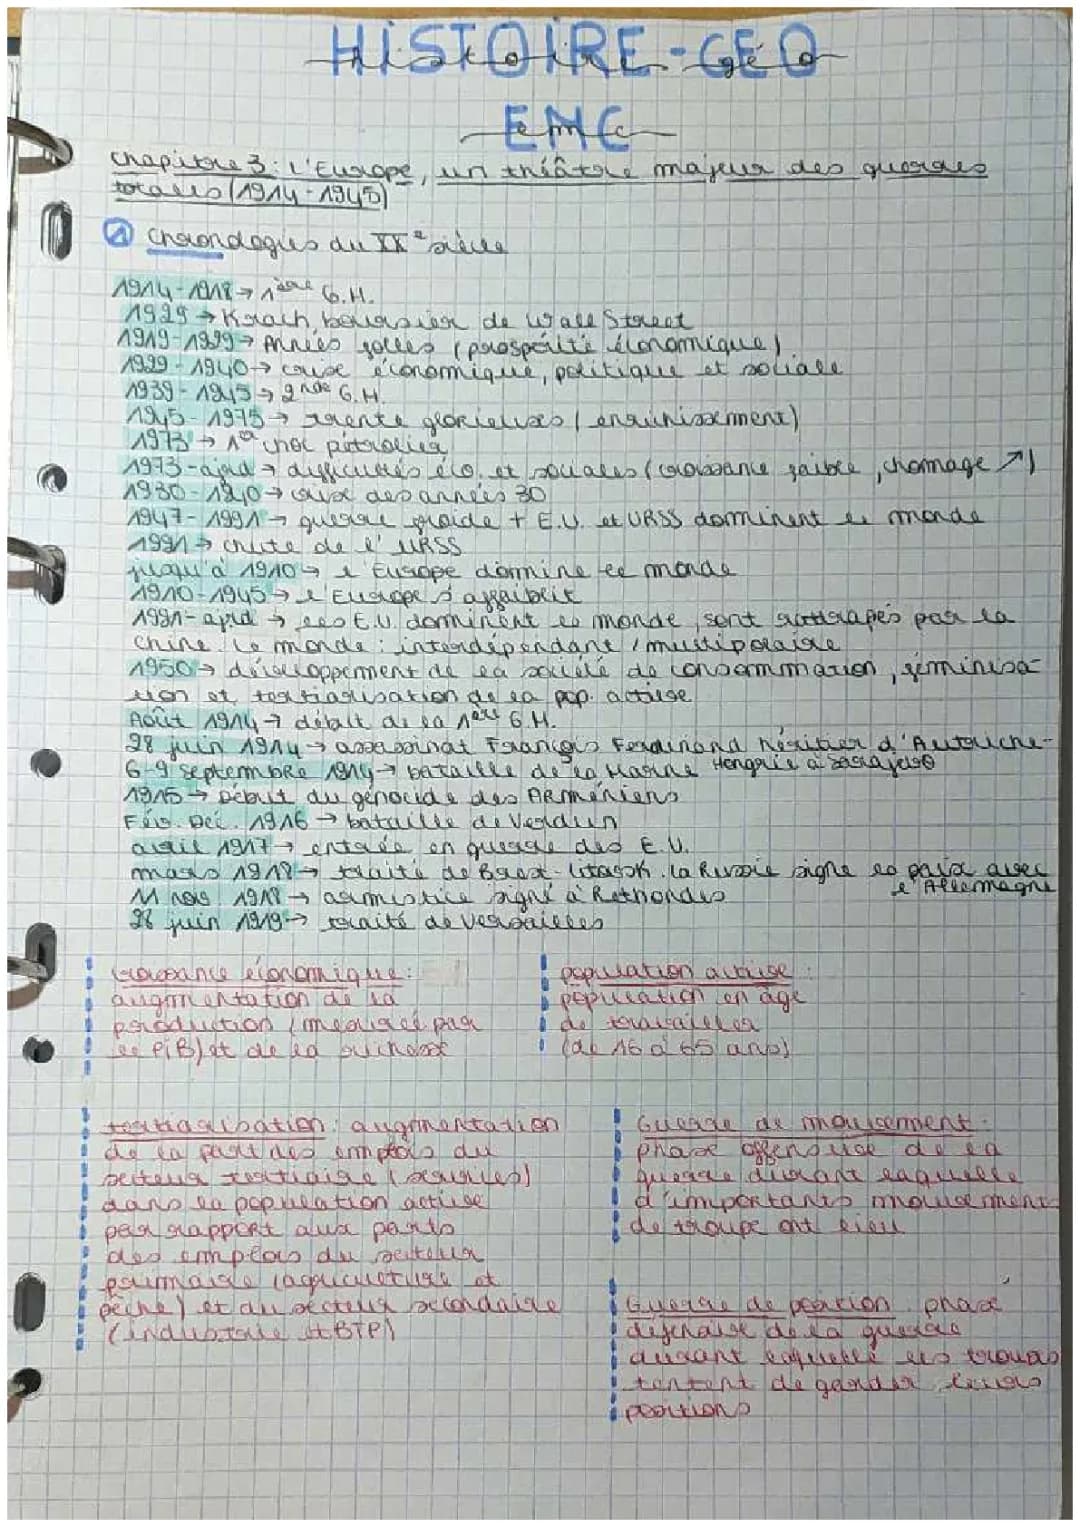 HISTOIRE-GÉO
Histoire-géo
EMC
emc
chapitre 3 : l'Europe, un théâtre majeur des guerres
totales (1914-1945)
1 Chronologies du XXe siècle
1914-1918 → 1ère G.H.
1929 → Krach boursier de Wall Street
1919-1929 → Années folles (prospérité économique)
1929-1940 → crise économique, politique et sociale
1939-1945 → 2nde G.H.
1945-1975 → trente glorieuses (enrichissement)
1973 → 1er choc pétrolier
1973-ajrd → difficultés éco. et sociales (croissance faible, chomage ↗)
1930-1940 → crise des années 30
1947-1991 → guerre froide + E.U. et URSS dominent le monde
1991 → chute de l'URSS
jusqu'à 1910 → l'Europe domine le monde
1910-1945 → l'Europe s'affaiblit
1991-ajrd → les E.U. dominent le monde, sont rattrapés par la
chine. Le monde : interdépendant / multipolaire
1950 → développement de la société de consommation, féminisa-
tion et tertiarisation de la pop. active
Août 1914 → début de la 1ère G.H.
28 juin 1914 → assassinat François Ferdinand héritier d'Autriche-
Hongrie à Sarajevo
6-9 septembre 1914 → bataille de la Marne
1915 → Début du génocide des Arméniens
Fév. Déc. 1916 → bataille de Verdun
avril 1917 → entrée en guerre des E.U.
mars 1918 → traité de Brest-Litovsk. la Russie signe la paix avec
l'Allemagne
11 nov. 1918 → armistice signé à Rethondes
28 juin 1919 → traité de Versailles
croissance économique :
augmentation de la
production (mesurée par
le PiB) et de la richesse
population active :
population en âge
de travailler
(de 16 à 65 ans)
tertiarisation : augmentation
de la part des emplois du
secteur tertiaire (services)
dans la population active
par rapport aux parts
des emplois du secteur
primaire (agriculture et
pêche) et du secteur secondaire
(industrie et BTP)
Guerre de mouvement :
phase offensive de la
guerre durant laquelle
d'importants mouvements
de troupe ont lieu
Guerre de position : phase
défensive de la guerre
durant laquelle les troupes
tentent de garder leurs
positions